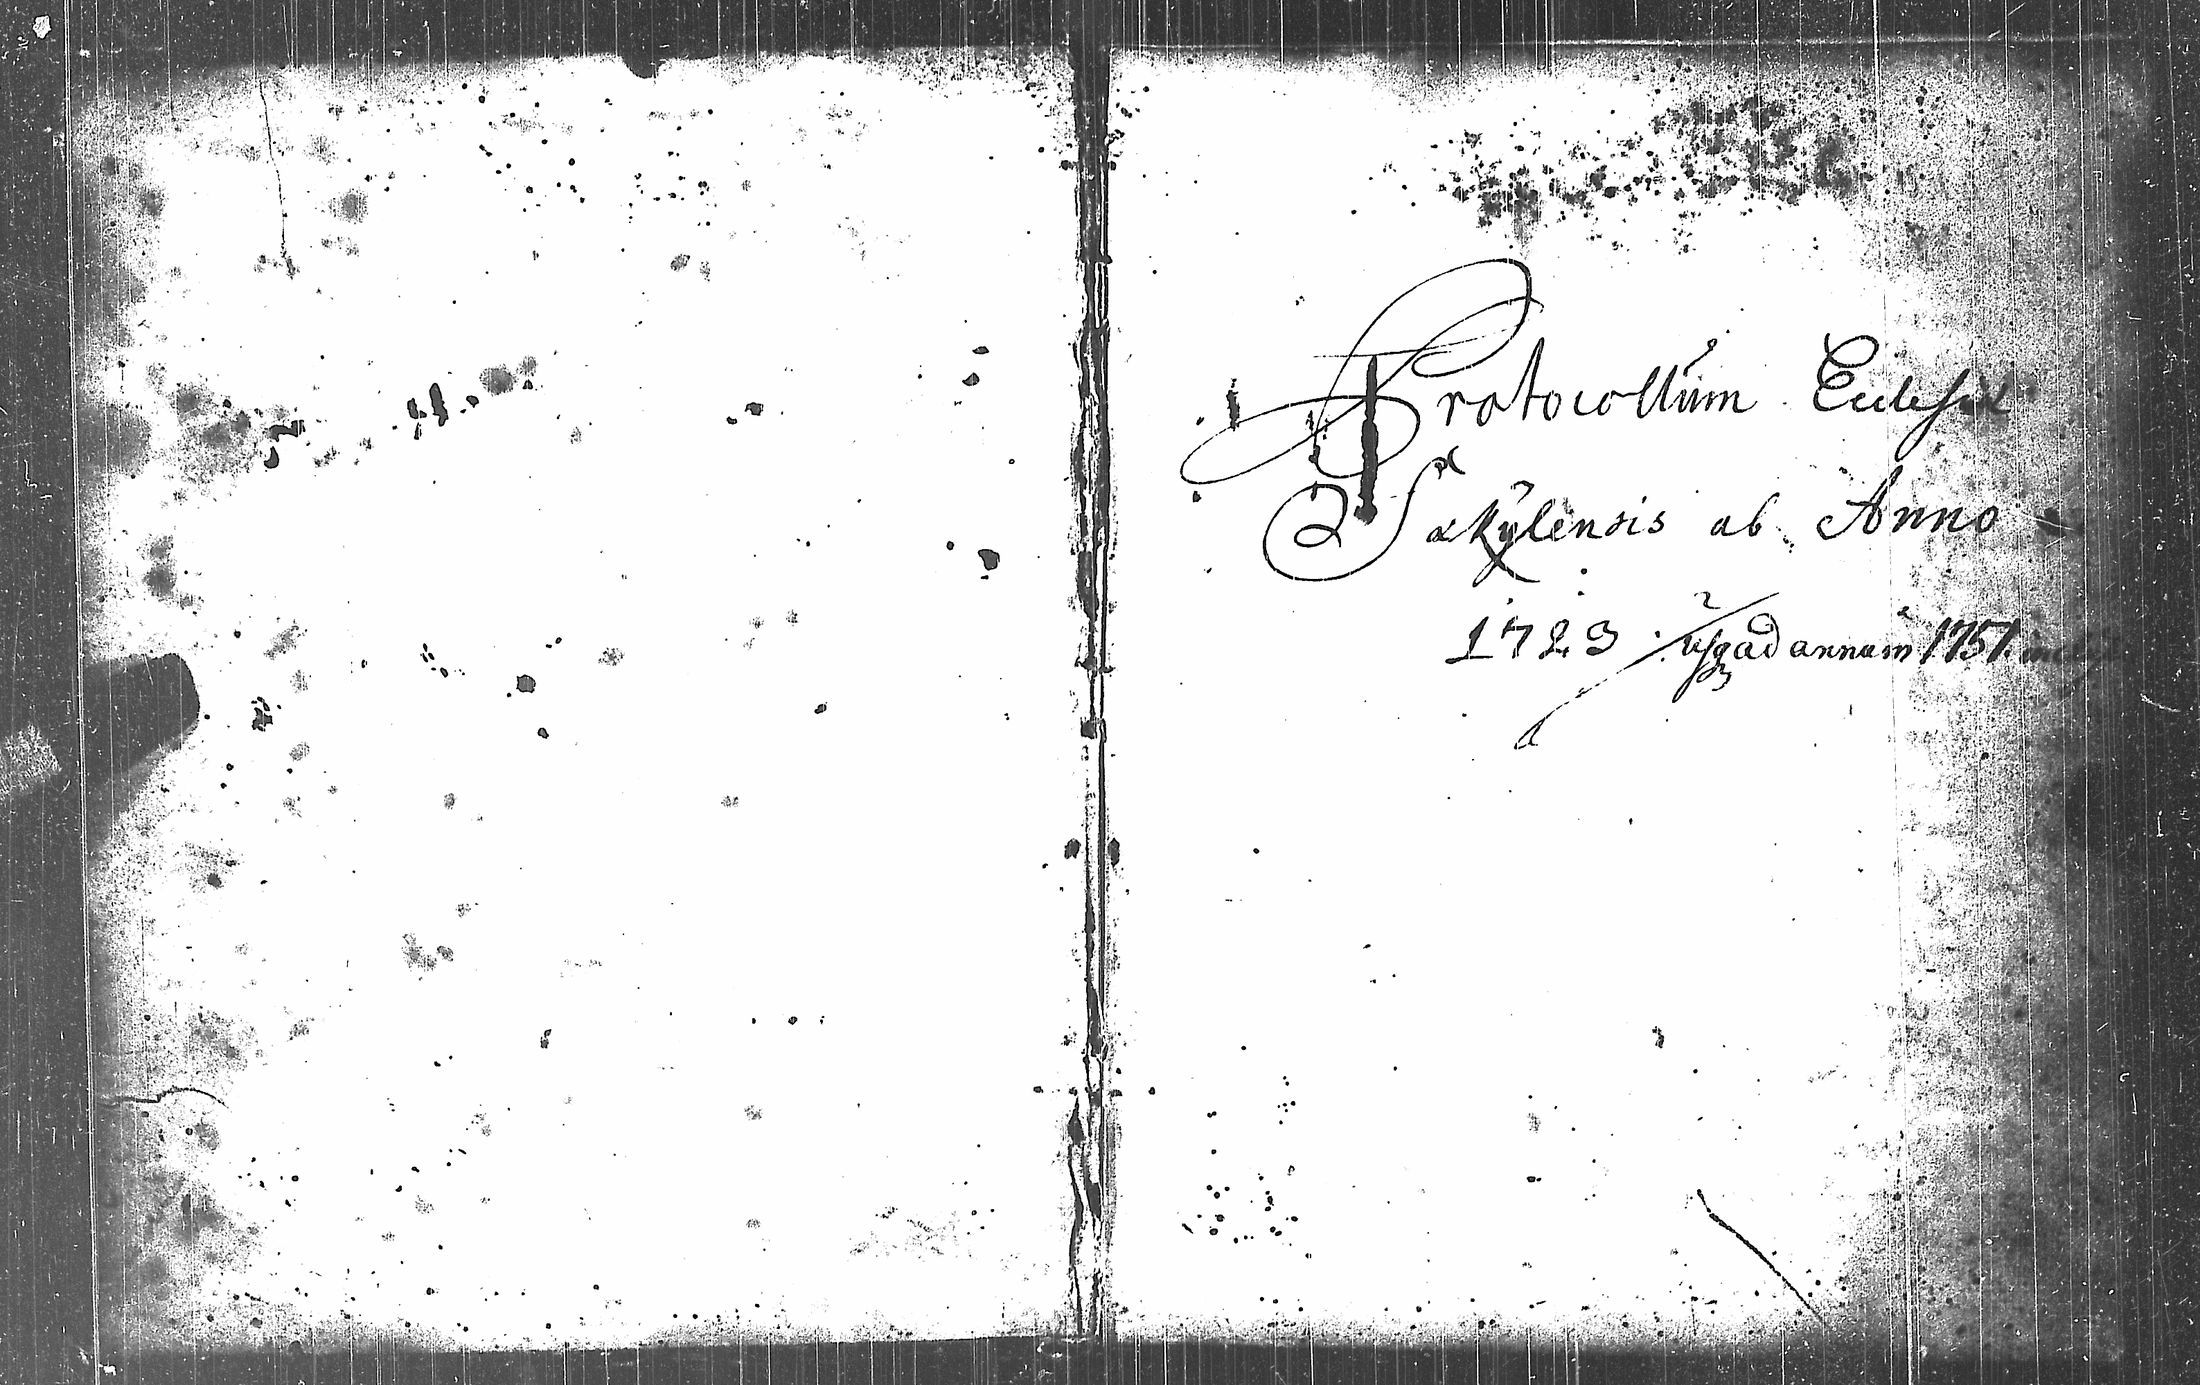 Protocollum Ecclesiæ
Säkÿlensis ab Anno
1723 usqꝫ ad annum 1751.